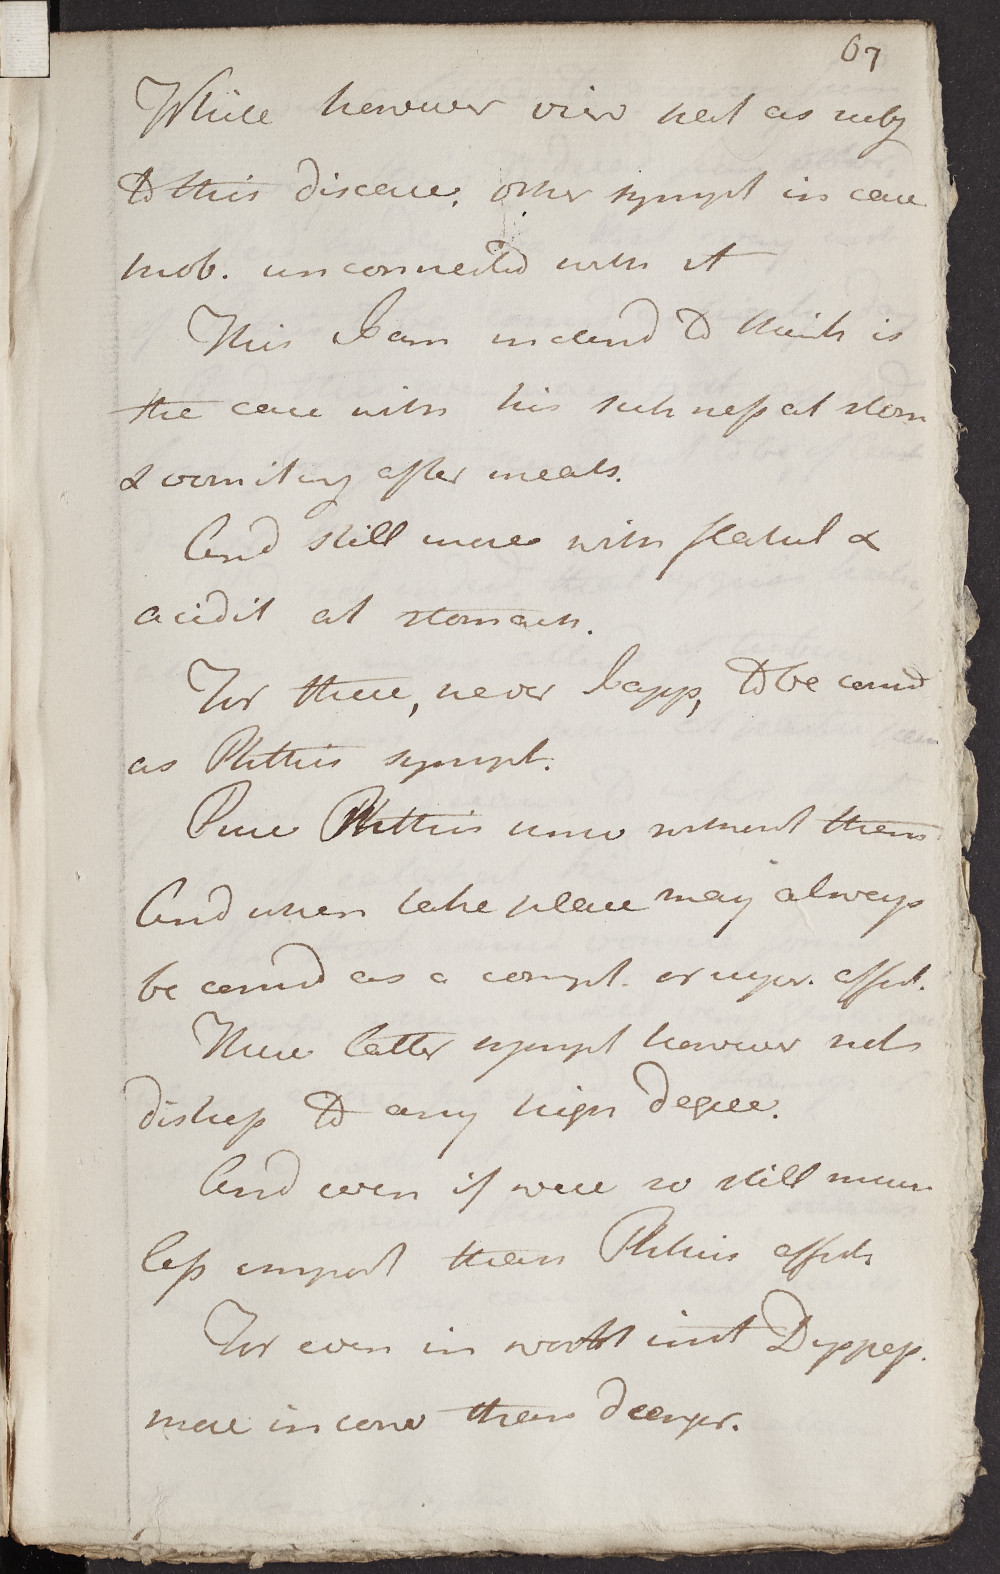 67
While however view heat as subj
to this disease. other sympt in case
prob. unconnected with it
This I am inclind to think is
the case with his sickness at stom
& vomiting after meals.
And still more with flatul &
acidit at stomach.
For these, never I app, to be consid
as Phthisi sympt.
Pure Phthisis univ without them
And when take place may always
be consid as a compt. or super. affect.
These latter sympt however not
distress to any high degree.
And even if were so still much
less import than Phthisi affects
For even in worst inst Dyspep.
more inconv than danger.